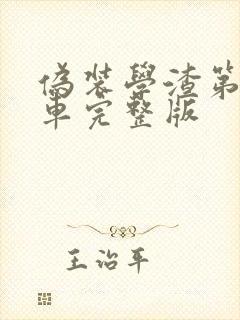 偽装學渣第
車完整版
王治平